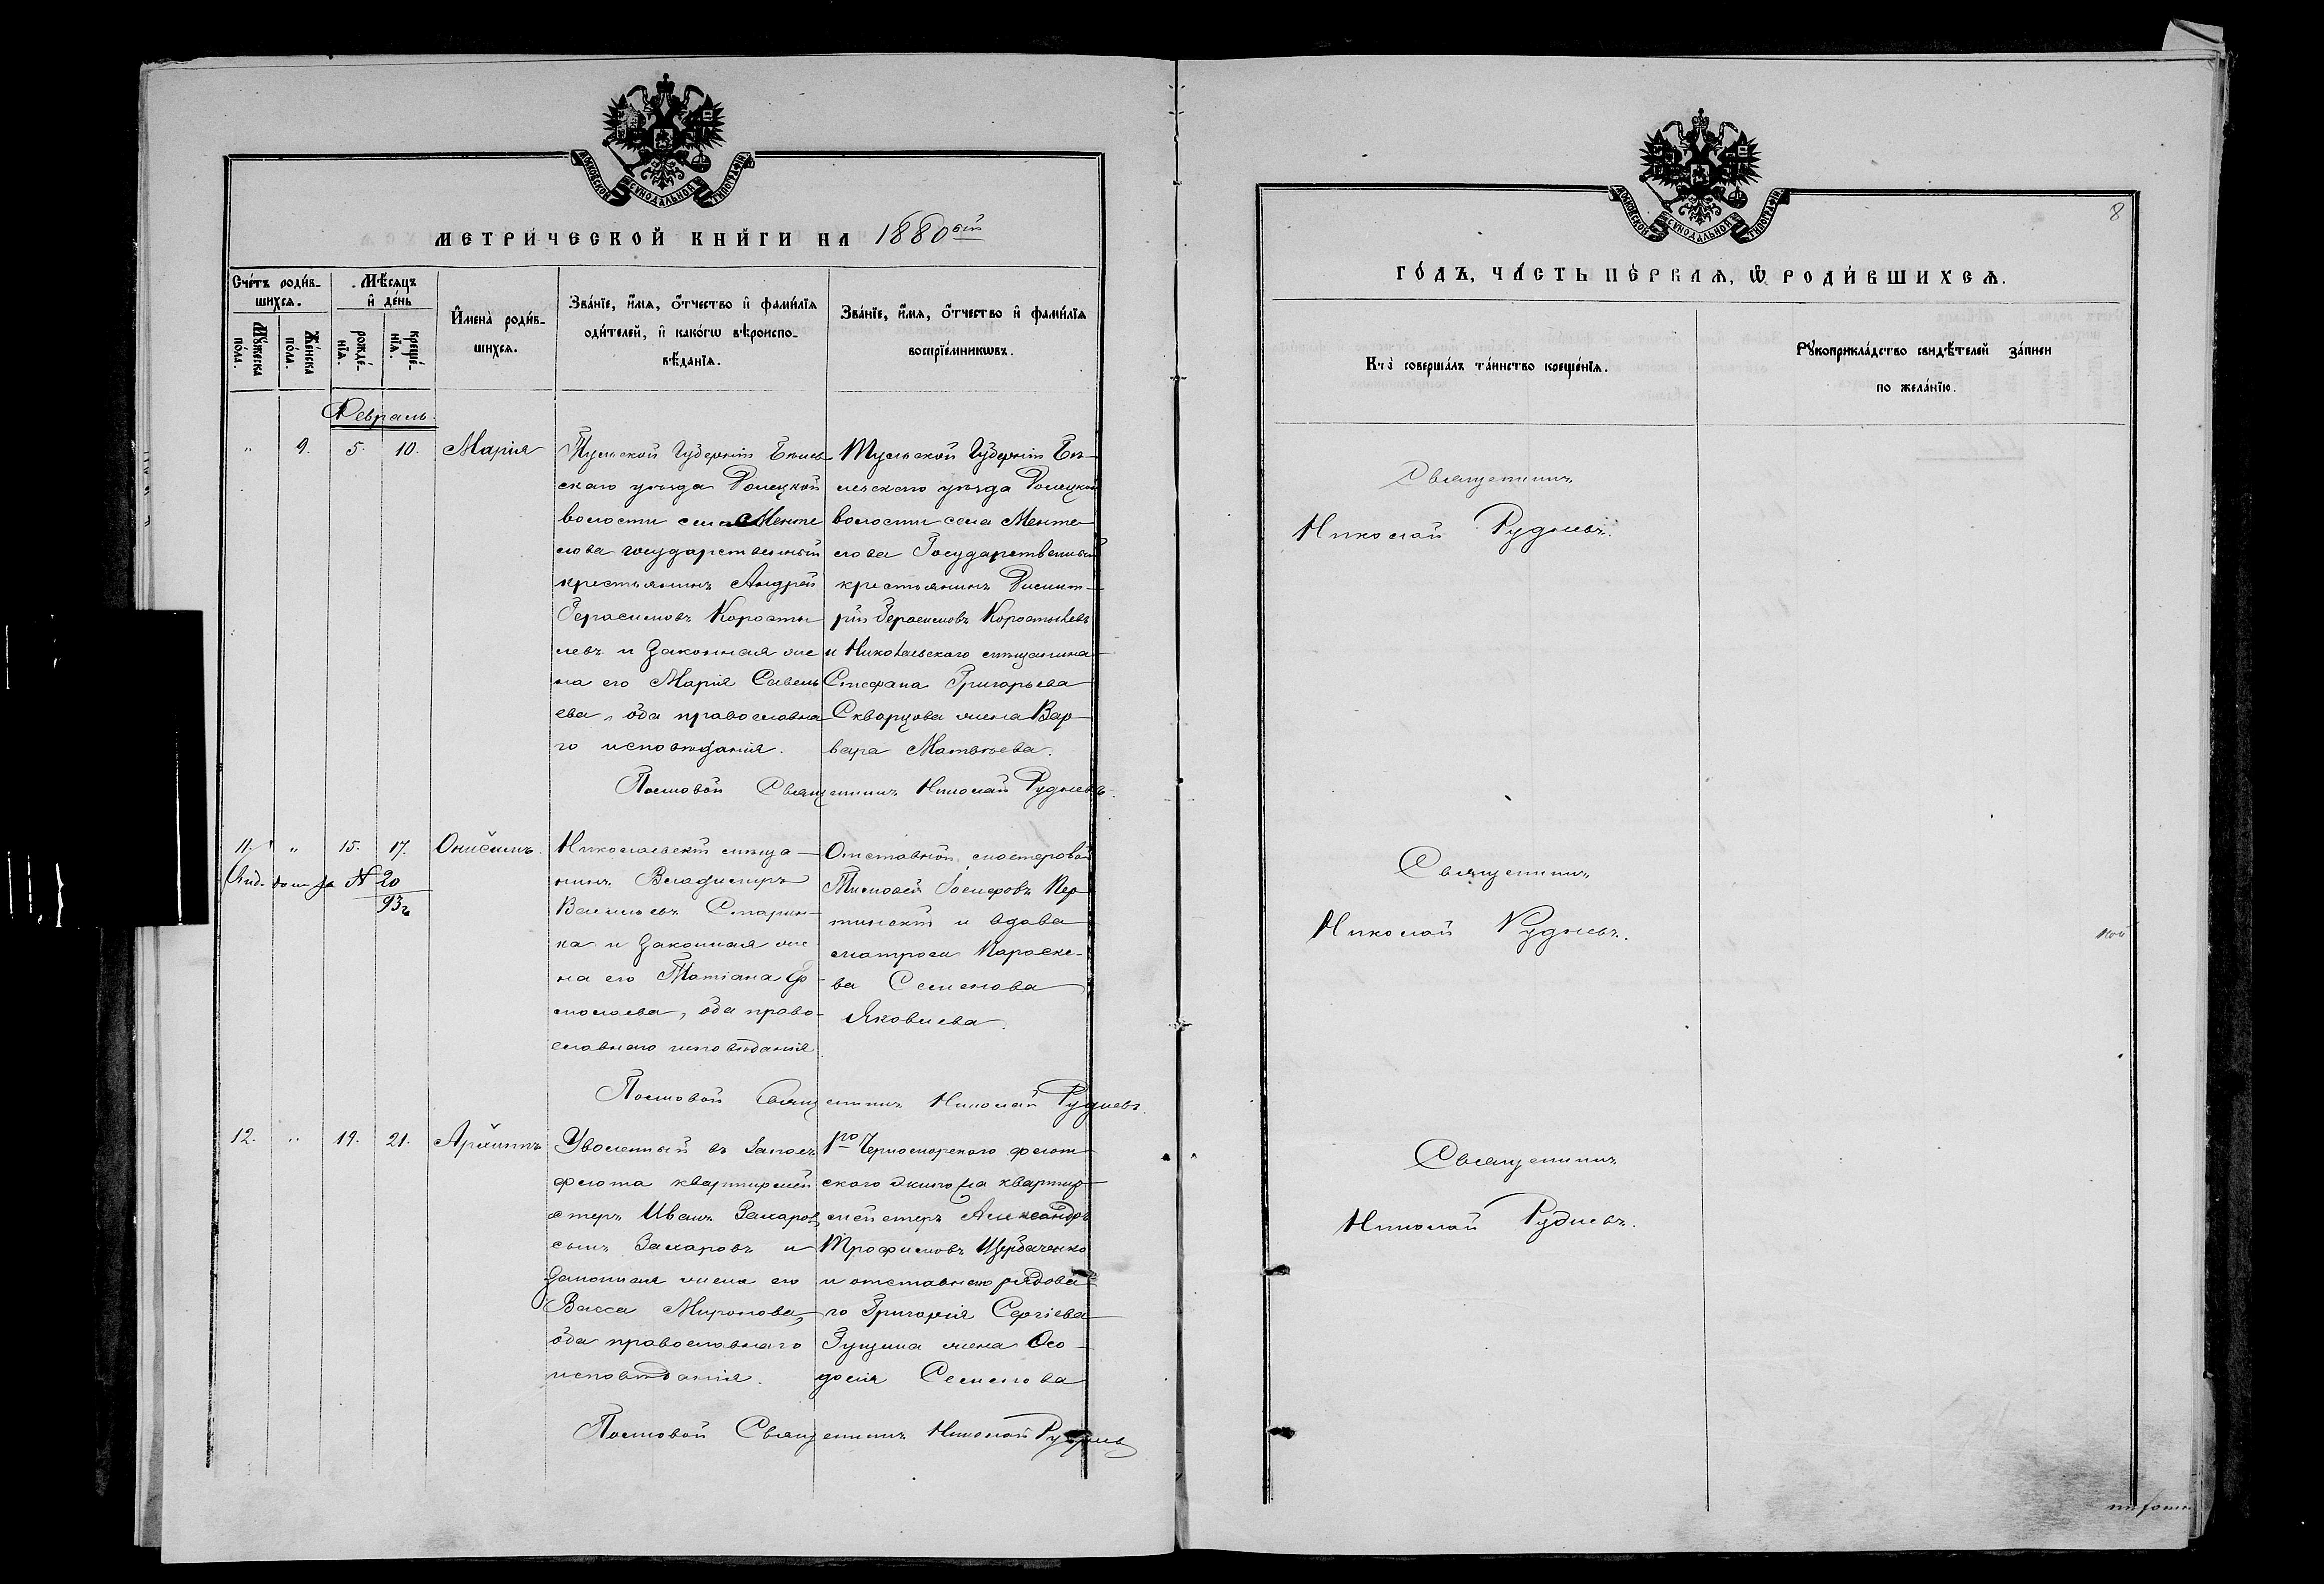 МОСКОВСКОЙ СѴНОДАЛЬНОЙ ТИПОГРАФІИ
МЕТРИ́ЧЕСКОЙ КНИ́ГИ НА 1880ый
Сче́тъ роди́в-
шихсѧ.
Мѣ́сяцъ
и҆ де́нь
Мꙋ́жеска
по́ла.
Же́нска
по́ла.
рожде́-
нїѧ.
креще́-
нїѧ.
И҆мена̀ роди́в-
шихсѧ.
Зва́нїе, и҆́мѧ, ѻ҆́тчество и҆ фами́лїѧ
роди́телей, и҆ како́гѡ вѣроиспо-
вѣ́данїѧ.
Зва́нїе, и҆́мѧ, ѻ҆́тчество и҆ фами́лїѧ
воспрїе́мникѡвъ.
Февраль.
" 9. 5. 10. Марія
Тульской Губерніи Бѣлев-
скаго уѣзда Долецкой
волости села Менте
лова государственный
крестьянинъ Андрей
Герасимовъ Коросты
левъ и законная же
на его Марія Савель
ева, оба православна
го исповѣданія.
Тульской Губерніи Бѣ-
левскаго уѣзда Долецкой
волости села Менте-
лова Государственный
крестьянинъ Димит-
рій Герасимовъ Коростылевъ
и Николаевскаго мѣщанина
Стефана Григорьева
Скворцова жена Вар-
вара Матвѣева.
Приходской Священникъ Николай Рудневъ.
11. " 15. 17. Онисимъ.
Выд. за № 20
93г
Николаевскій мѣща-
нинъ Владиміръ
Васильевъ Старин-
ка и законная же
на его Татіана Ер-
молаева, оба право-
славнаго исповѣданія
Отставной мастеровой
Тимофей Іосифовъ
и вдова
матроса Параске-
ва Семенова
Яковлева.
Священникъ Николай Рудневъ.
12. " 19. 21. Архиппъ
Уволенный въ запасъ
флота квартирмей
стеръ Иванъ Захаровъ
сынъ Захаровъ и
законная жена его
Васса Миронова,
оба православнаго
исповѣданія.
1го Черноморскаго флот-
скаго экипажа квартир-
мейстеръ Александръ
Трофимовъ Щербаченко
и отставнаго рядова-
го Григорія Сергіева
Гущина жена Ѳео-
досія Семенова
Священникъ Николай Рудневъ
МОСКОВСКОЙ СѴНОДАЛЬНОЙ ТИПОГРАФІИ
8
ГО́ДЪ, ЧА́СТЬ ПЕ́РВАѦ, Ѡ҆ РОДИ́ВШИХСѦ.
Кто̀ соверша́лъ та́инство креще́нїѧ.
Рꙋкоприкла́дство свидѣ́телей за́писи
по жела́нїю.
Священникъ
Николай Рудневъ.
Священникъ
Николай Рудневъ.
Священникъ
Николай Рудневъ.